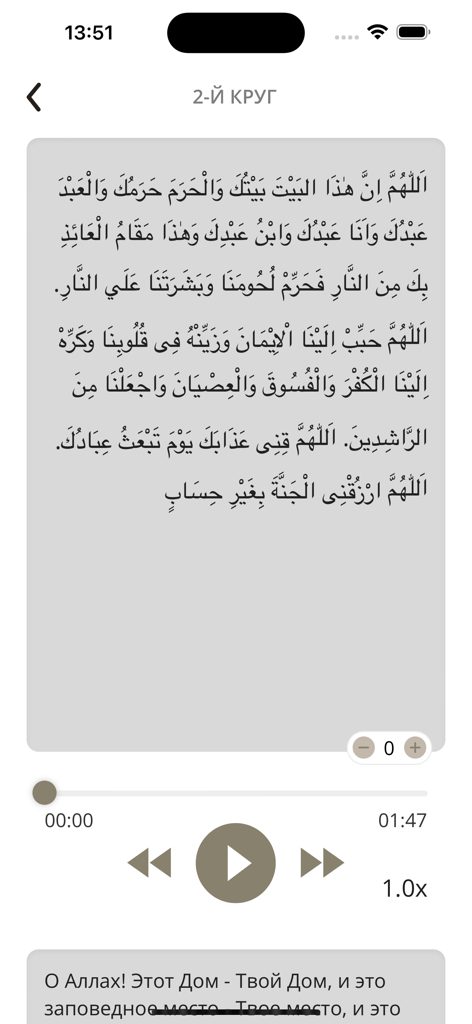 13:51
2-Й КРУГ
اَللّٰهُمَّ اِنَّ هٰذَا البَيْتَ بَيْتُكَ وَالْحَرَمَ حَرَمُكَ وَالْعَبْدَ
عَبْدُكَ وَاَنَا عَبْدُكَ وَابْنُ عَبْدِكَ وَهٰذَا مَقَامُ الْعَائِذِ
بِكَ مِنَ النَّارِ فَحَرِّمْ لُحُومَنَا وَبَشَرَتَنَا عَلَي النَّارِ.
اَللّٰهُمَّ حَبِّبْ اِلَيْنَا الْاِيْمَانَ وَزَيِّنْهُ فِى قُلُوبِنَا وَكَرِّهْ
اِلَيْنَا الْكُفْرَ وَالْفُسُوقَ وَالْعِصْيَانَ وَاجْعَلْنَا مِنَ
الرَّاشِدِينَ. اَللّٰهُمَّ قِنِى عَذَابَكَ يَوْمَ تَبْعَثُ عِبَادُكَ.
اَللّٰهُمَّ ارْزُقْنِى الْجَنَّةَ بِغَيْرِ حِسَابٍ
0
00:00
01:47
1.0x
О Аллах! Этот Дом - Твой Дом, и это
заповедное место - Твое место, и это